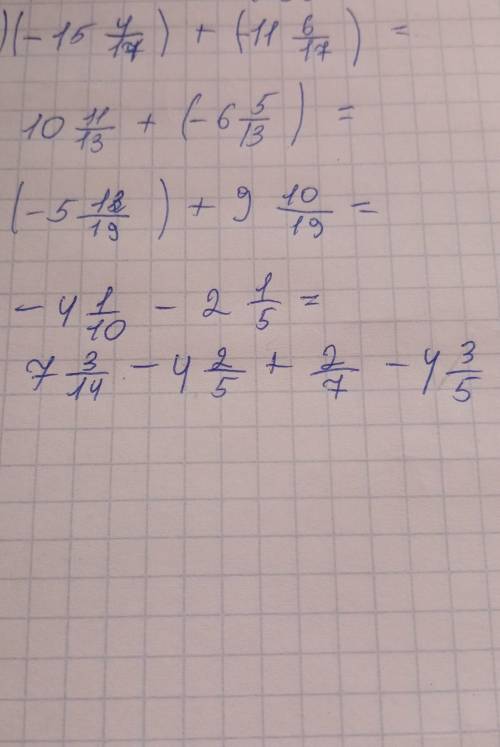 )(-15 4/17) + (-11 6/17) =
10 11/13 + (-6 5/13) =
(-5 12/19) + 9 10/19 =
-4 1/10 - 2 1/5 =
7 3/14 - 4 2/5 + 2/7 - 4 3/5